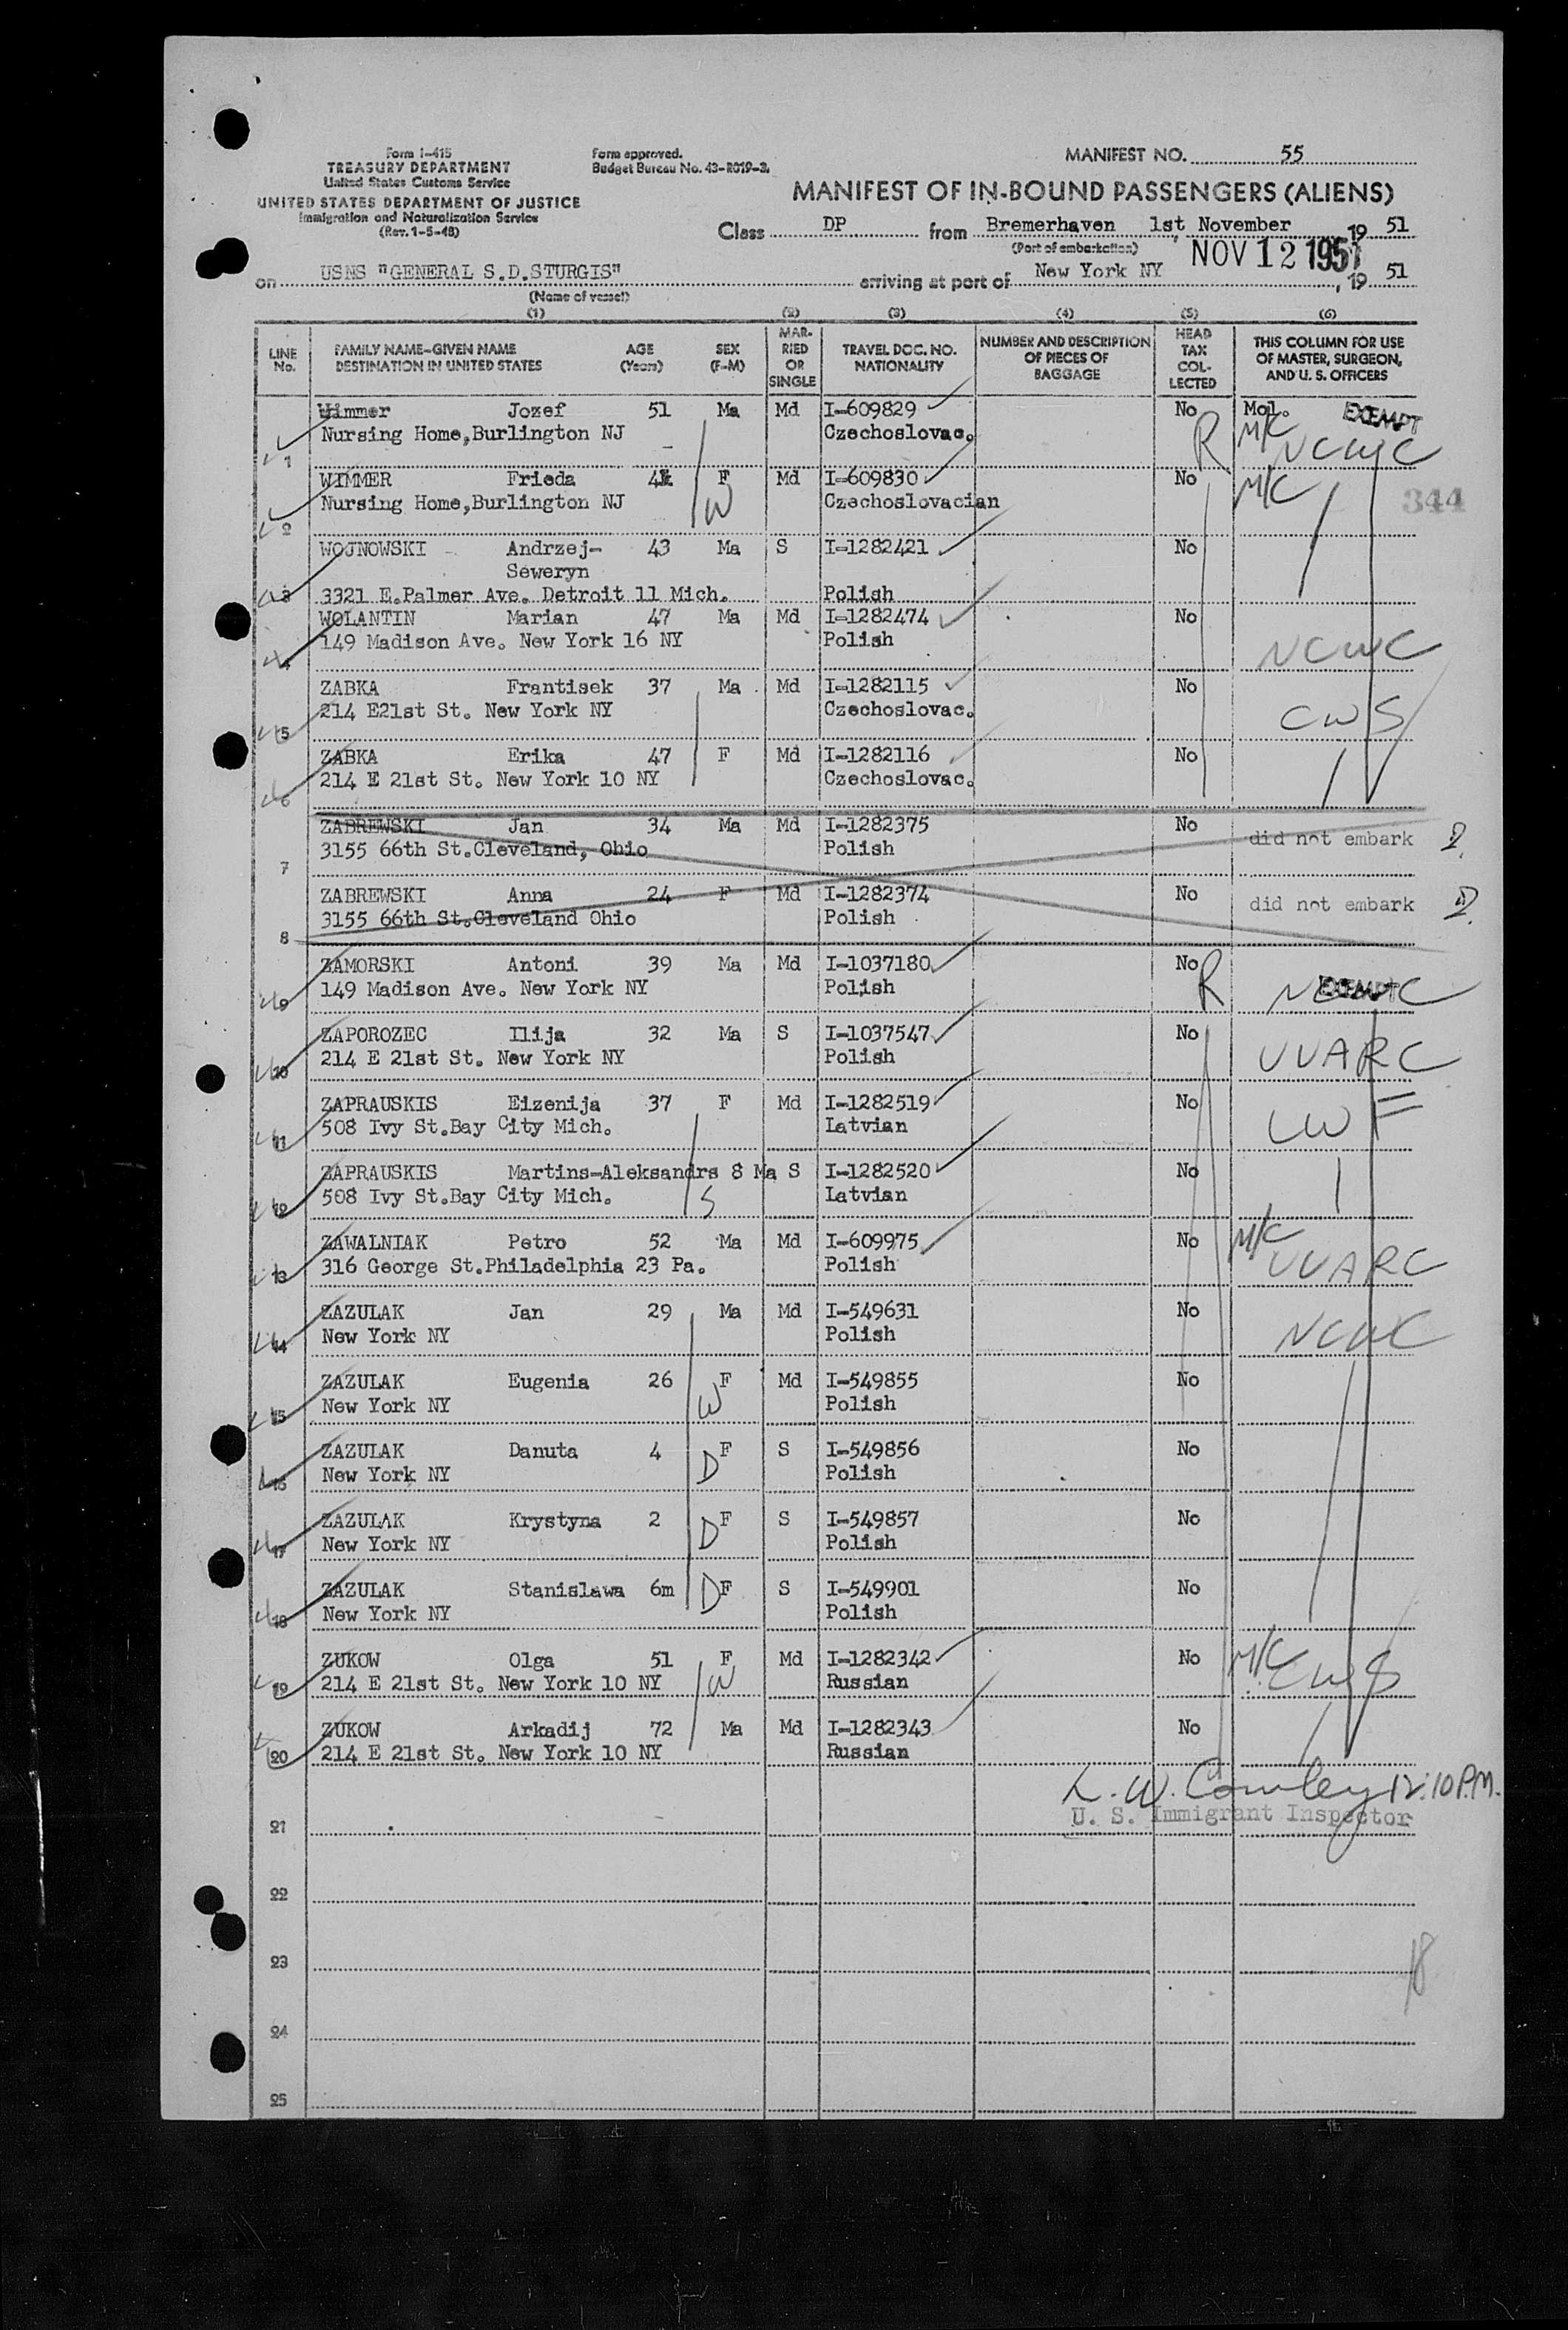 Form I-415
TREASURY DEPARTMENT
United States Customs Service
UNITED STATES DEPARTMENT OF JUSTICE
Immigration and Naturalization Service
(Rev. 1-5-48)
Form approved.
Budget Bureau No. 43-R019-3.
MANIFEST NO. 55
MANIFEST OF IN-BOUND PASSENGERS (ALIENS)
Class DP from Bremerhaven 1st November, 19 51
(Port of embarkation)
NOV 12 1951
on USNS "GENERAL S.D.STURGIS" arriving at port of New York NY, 19 51
(Name of vessel)
(1) (2) (3) (4) (5) (6)
LINE No.
FAMILY NAME-GIVEN NAME AGE SEX
DESTINATION IN UNITED STATES (Years) (F-M)
MAR-
RIED
OR
SINGLE
TRAVEL DOC. NO.
NATIONALITY
NUMBER AND DESCRIPTION
OF PIECES OF
BAGGAGE
HEAD
TAX
COL-
LECTED
THIS COLUMN FOR USE
OF MASTER, SURGEON,
AND U. S. OFFICERS
Wimmer Jozef 51 Ma Md I-609829 No Mol. EXEMPT
1 Nursing Home,Burlington NJ Czechoslovac. R M/C NCWC
WIMMER Frieda F Md I-609830 No M/C
2 Nursing Home,Burlington NJ W Czechoslovacian 344
WOJNOWSKI Andrzej- 43 Ma S I-1282421 No
Seweryn
3 3321 E.Palmer Ave. Detroit 11 Mich. Polish
WOLANTIN Marian 47 Ma Md I-1282474 No
4 149 Madison Ave. New York 16 NY Polish NCWC
ZABKA Frantisek 37 Ma Md I-1282115 No
5 214 E21st St. New York NY Czechoslovac. CWS
ZABKA Erika 47 F Md I-1282116 No
6 214 E 21st St. New York 10 NY Czechoslovac.
ZABREWSKI Jan 34 Ma Md I-1282375 No did not embark
7 3155 66th St.Cleveland, Ohio Polish
ZABREWSKI Anna 24 F Md I-1282374 No did not embark
8 3155 66th St.Cleveland Ohio Polish
ZAMORSKI Antoni 39 Ma Md I-1037180 No R EXEMPT NCWC
9 149 Madison Ave. New York NY Polish
ZAPOROZEC Ilija 32 Ma S I-1037547 No
10 214 E 21st St. New York NY Polish UUARC
ZAPRAUSKIS Eizenija 37 F Md I-1282519 No
11 508 Ivy St.Bay City Mich. Latvian LWF
ZAPRAUSKIS Martins-Aleksandrs 8 Ma S I-1282520 No
12 508 Ivy St.Bay City Mich. S Latvian
ZAWALNIAK Petro 52 Ma Md I-609975 No M/C
13 316 George St.Philadelphia 23 Pa. Polish UUARC
ZAZULAK Jan 29 Ma Md I-549631 No
14 New York NY Polish NCWC
ZAZULAK Eugenia 26 F Md I-549855 No
15 New York NY W Polish
ZAZULAK Danuta 4 F S I-549856 No
16 New York NY D Polish
ZAZULAK Krystyna 2 F S I-549857 No
17 New York NY D Polish
ZAZULAK Stanislawa 6m D F S I-549901 No
18 New York NY Polish
ZUKOW Olga 51 F Md I-1282342 No M/C
19 214 E 21st St. New York 10 NY W Russian CWS
ZUKOW Arkadij 72 Ma Md I-1282343 No
20 214 E 21st St. New York 10 NY Russian
12:10 P.M.
21 U. S. Immigrant Inspector
22
23
18
24
25